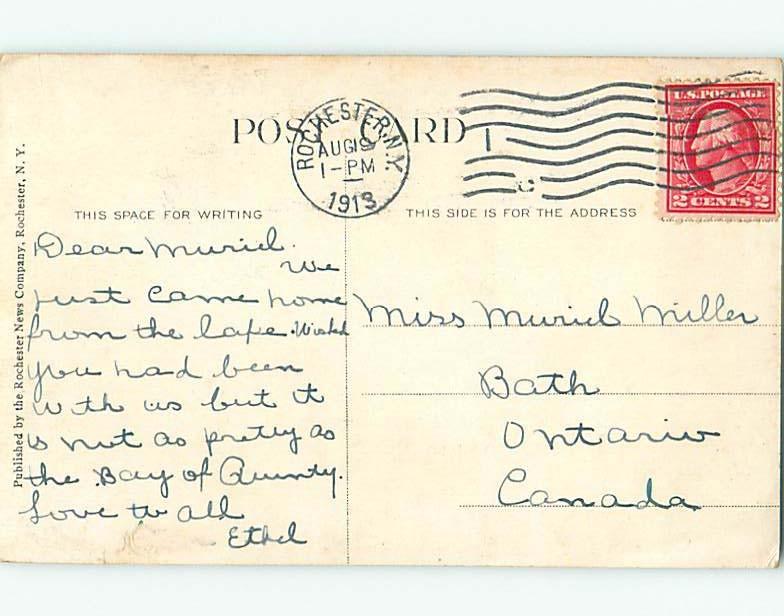 POST CARD
ROCHESTER, N.Y.
AUG 19
1-PM
1913
U.S. POSTAGE
2 CENTS 2
THIS SPACE FOR WRITING
THIS SIDE IS FOR THE ADDRESS
Published by the Rochester News Company, Rochester, N. Y.
Dear Muriel.
We
just came home
from the lake. Wished
you had been
with us but it
is not as pretty as
the Bay of Quinty.
Love to all
Ethel
Miss Muriel Miller
Bath
Ontario
Canada